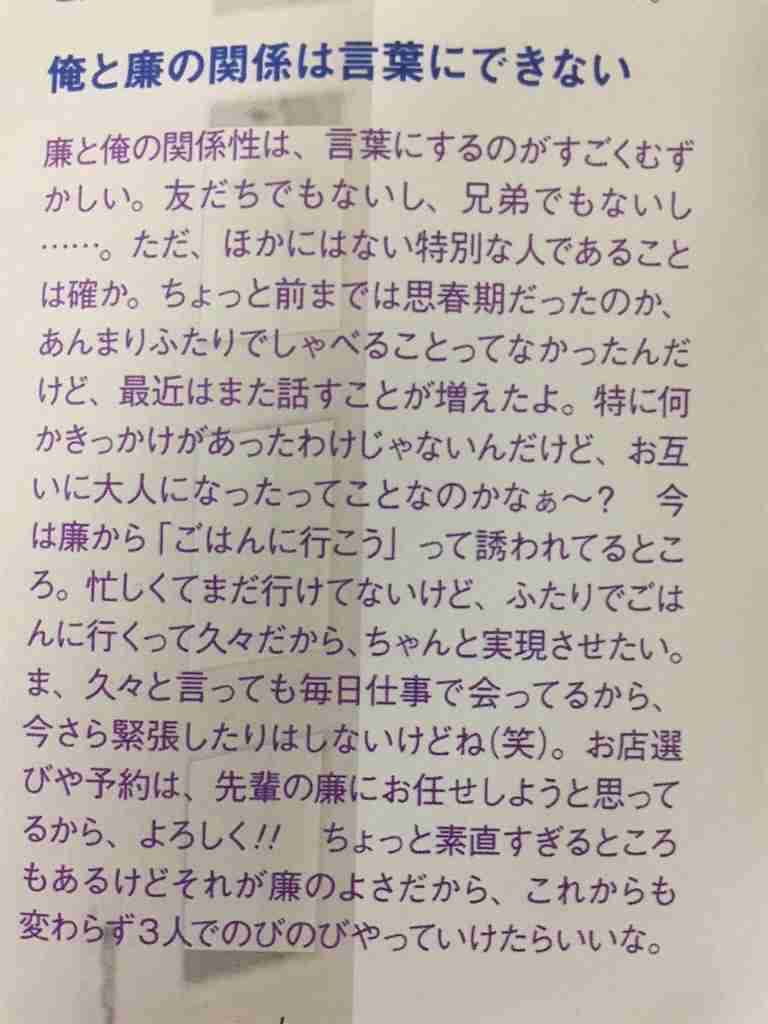 俺と廉の関係は言葉にできない
廉と俺の関係性は、言葉にするのがすごくむず
かしい。友だちでもないし、兄弟でもないし
……。ただ、ほかにはない特別な人であること
は確か。ちょっと前までは思春期だったのか、
あんまりふたりでしゃべることってなかったんだ
けど、最近はまた話すことが増えたよ。特に何
かきっかけがあったわけじゃないんだけど、お互
いに大人になったってことなのかなぁ〜？　今
は廉から「ごはんに行こう」って誘われてるとこ
ろ。忙しくてまだ行けてないけど、ふたりでごは
んに行くって久々だから、ちゃんと実現させたい。
ま、久々と言っても毎日仕事で会ってるから、
今さら緊張したりはしないけどね(笑)。お店選
びや予約は、先輩の廉にお任せしようと思って
るから、よろしく!!　ちょっと素直すぎるところ
もあるけどそれが廉のよさだから、これからも
変わらず3人でのびのびやっていけたらいいな。